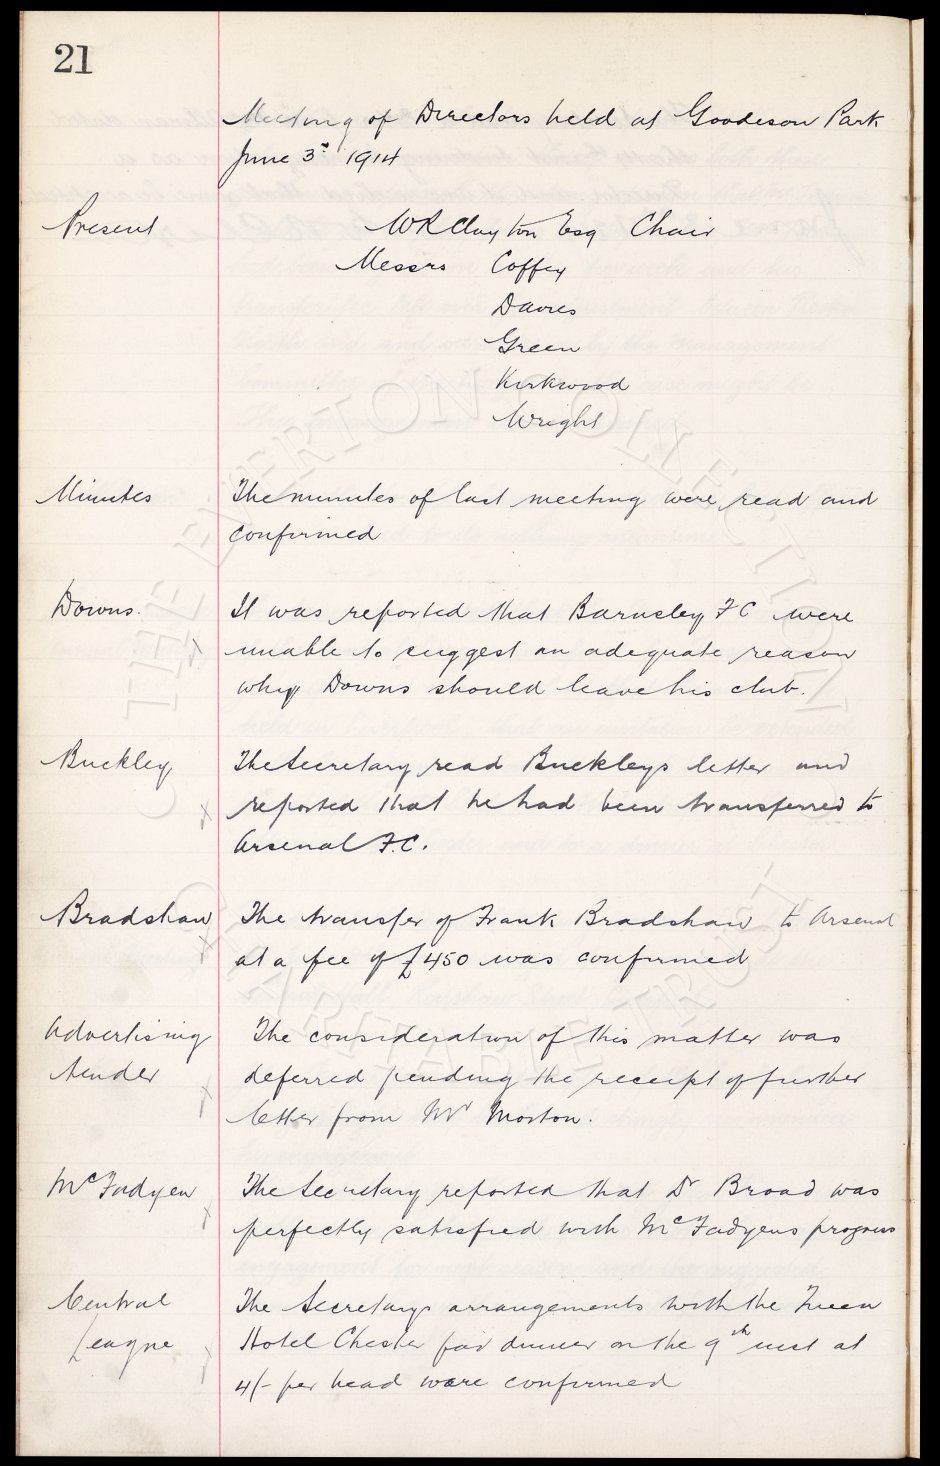 21
Meeting of Directors held at Goodison Park
June 3rd 1914
Present W R Clayton Esq Chair
Messrs Coffey
Davies
Green
Kirkwood
Wright
Minutes The minutes of last meeting were read and
confirmed
Downs. It was reported that Barnsley F C were
unable to suggest an adequate reason
why Downs should leave his club.
Buckley The Secretary read Buckleys letter and
reported that he had been transferred to
Arsenal F.C.
Bradshaw The transfer of Frank Bradshaw to Arsenal
at a fee of £450 was confirmed
Advertising The consideration of this matter was
tender deferred pending the receipt of further
letter from Mr Morton.
McFadyen The Secretary reported that Dr Broad was
perfectly satisfied with McFadyens progress
Central The Secretarys arrangements with the Queen
League Hotel Chester for dinner on the 9th inst at
4/- per head were confirmed
THE EVERTON COLLECTION CHARITABLE TRUST